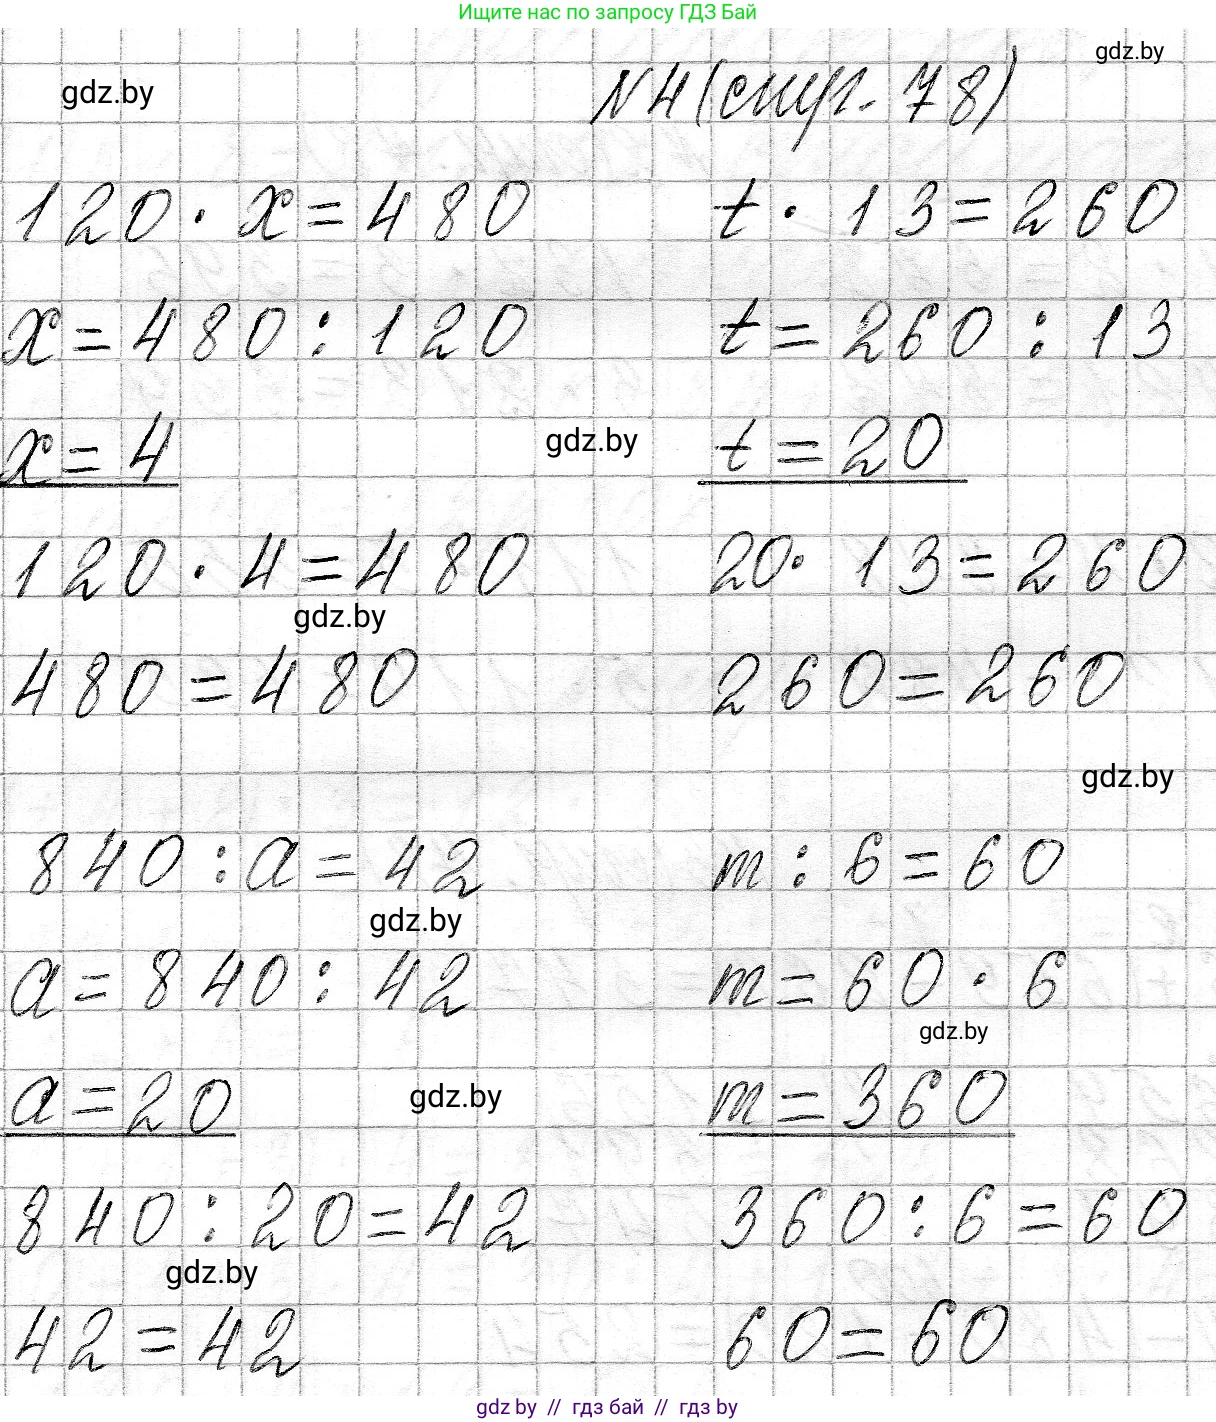 Ищите нас по запросу ГДЗ Бай
gdz.by
gdz.by
N4 (стр. 78)
120 · x = 480
x = 480 : 120
x = 4
gdz.by
120 · 4 = 480
gdz.by
480 = 480
t · 13 = 260
t = 260 : 13
t = 20
20 · 13 = 260
260 = 260
gdz.by
840 : a = 42
gdz.by
a = 840 : 42
a = 20
gdz.by
840 : 20 = 42
gdz.by
42 = 42
m : 6 = 60
m = 60 · 6
gdz.by
m = 360
360 : 6 = 60
60 = 60
gdz.by // гдз бай // гдз by